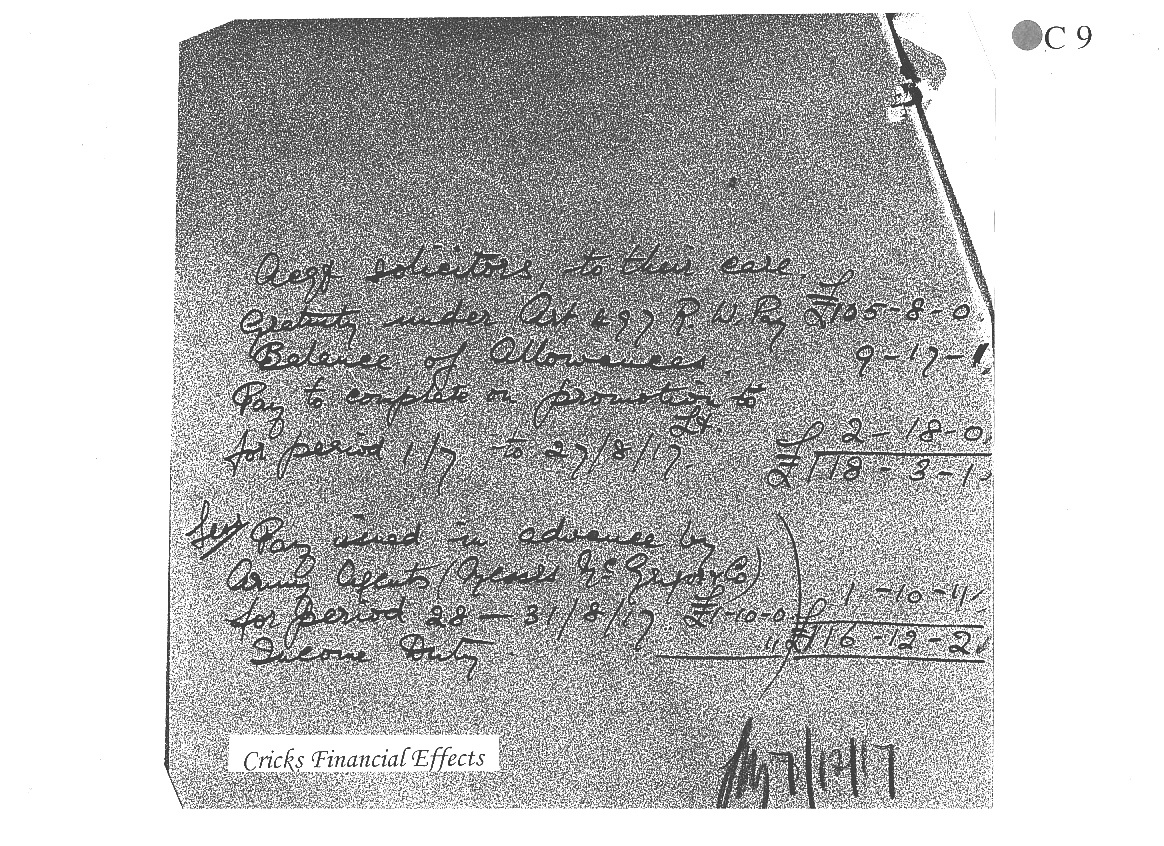 C 9
solicitors to their care.
Gratuity under Art 497 R. W. Pay £105-8-0
Balance of Allowances. 9-17-1
Pay to complete on promotion to
Lt.
for period 1/7 to 27/8/17. £ 2-18-0
£118-3-1
Less Pay issued in advance by
Army Agents (Messrs McGrigor & Co)
for period 28 - 31/8/17 £1-10-0 1-10-11
Income Duty 11 £116-12-2
7/12/17
Cricks Financial Effects